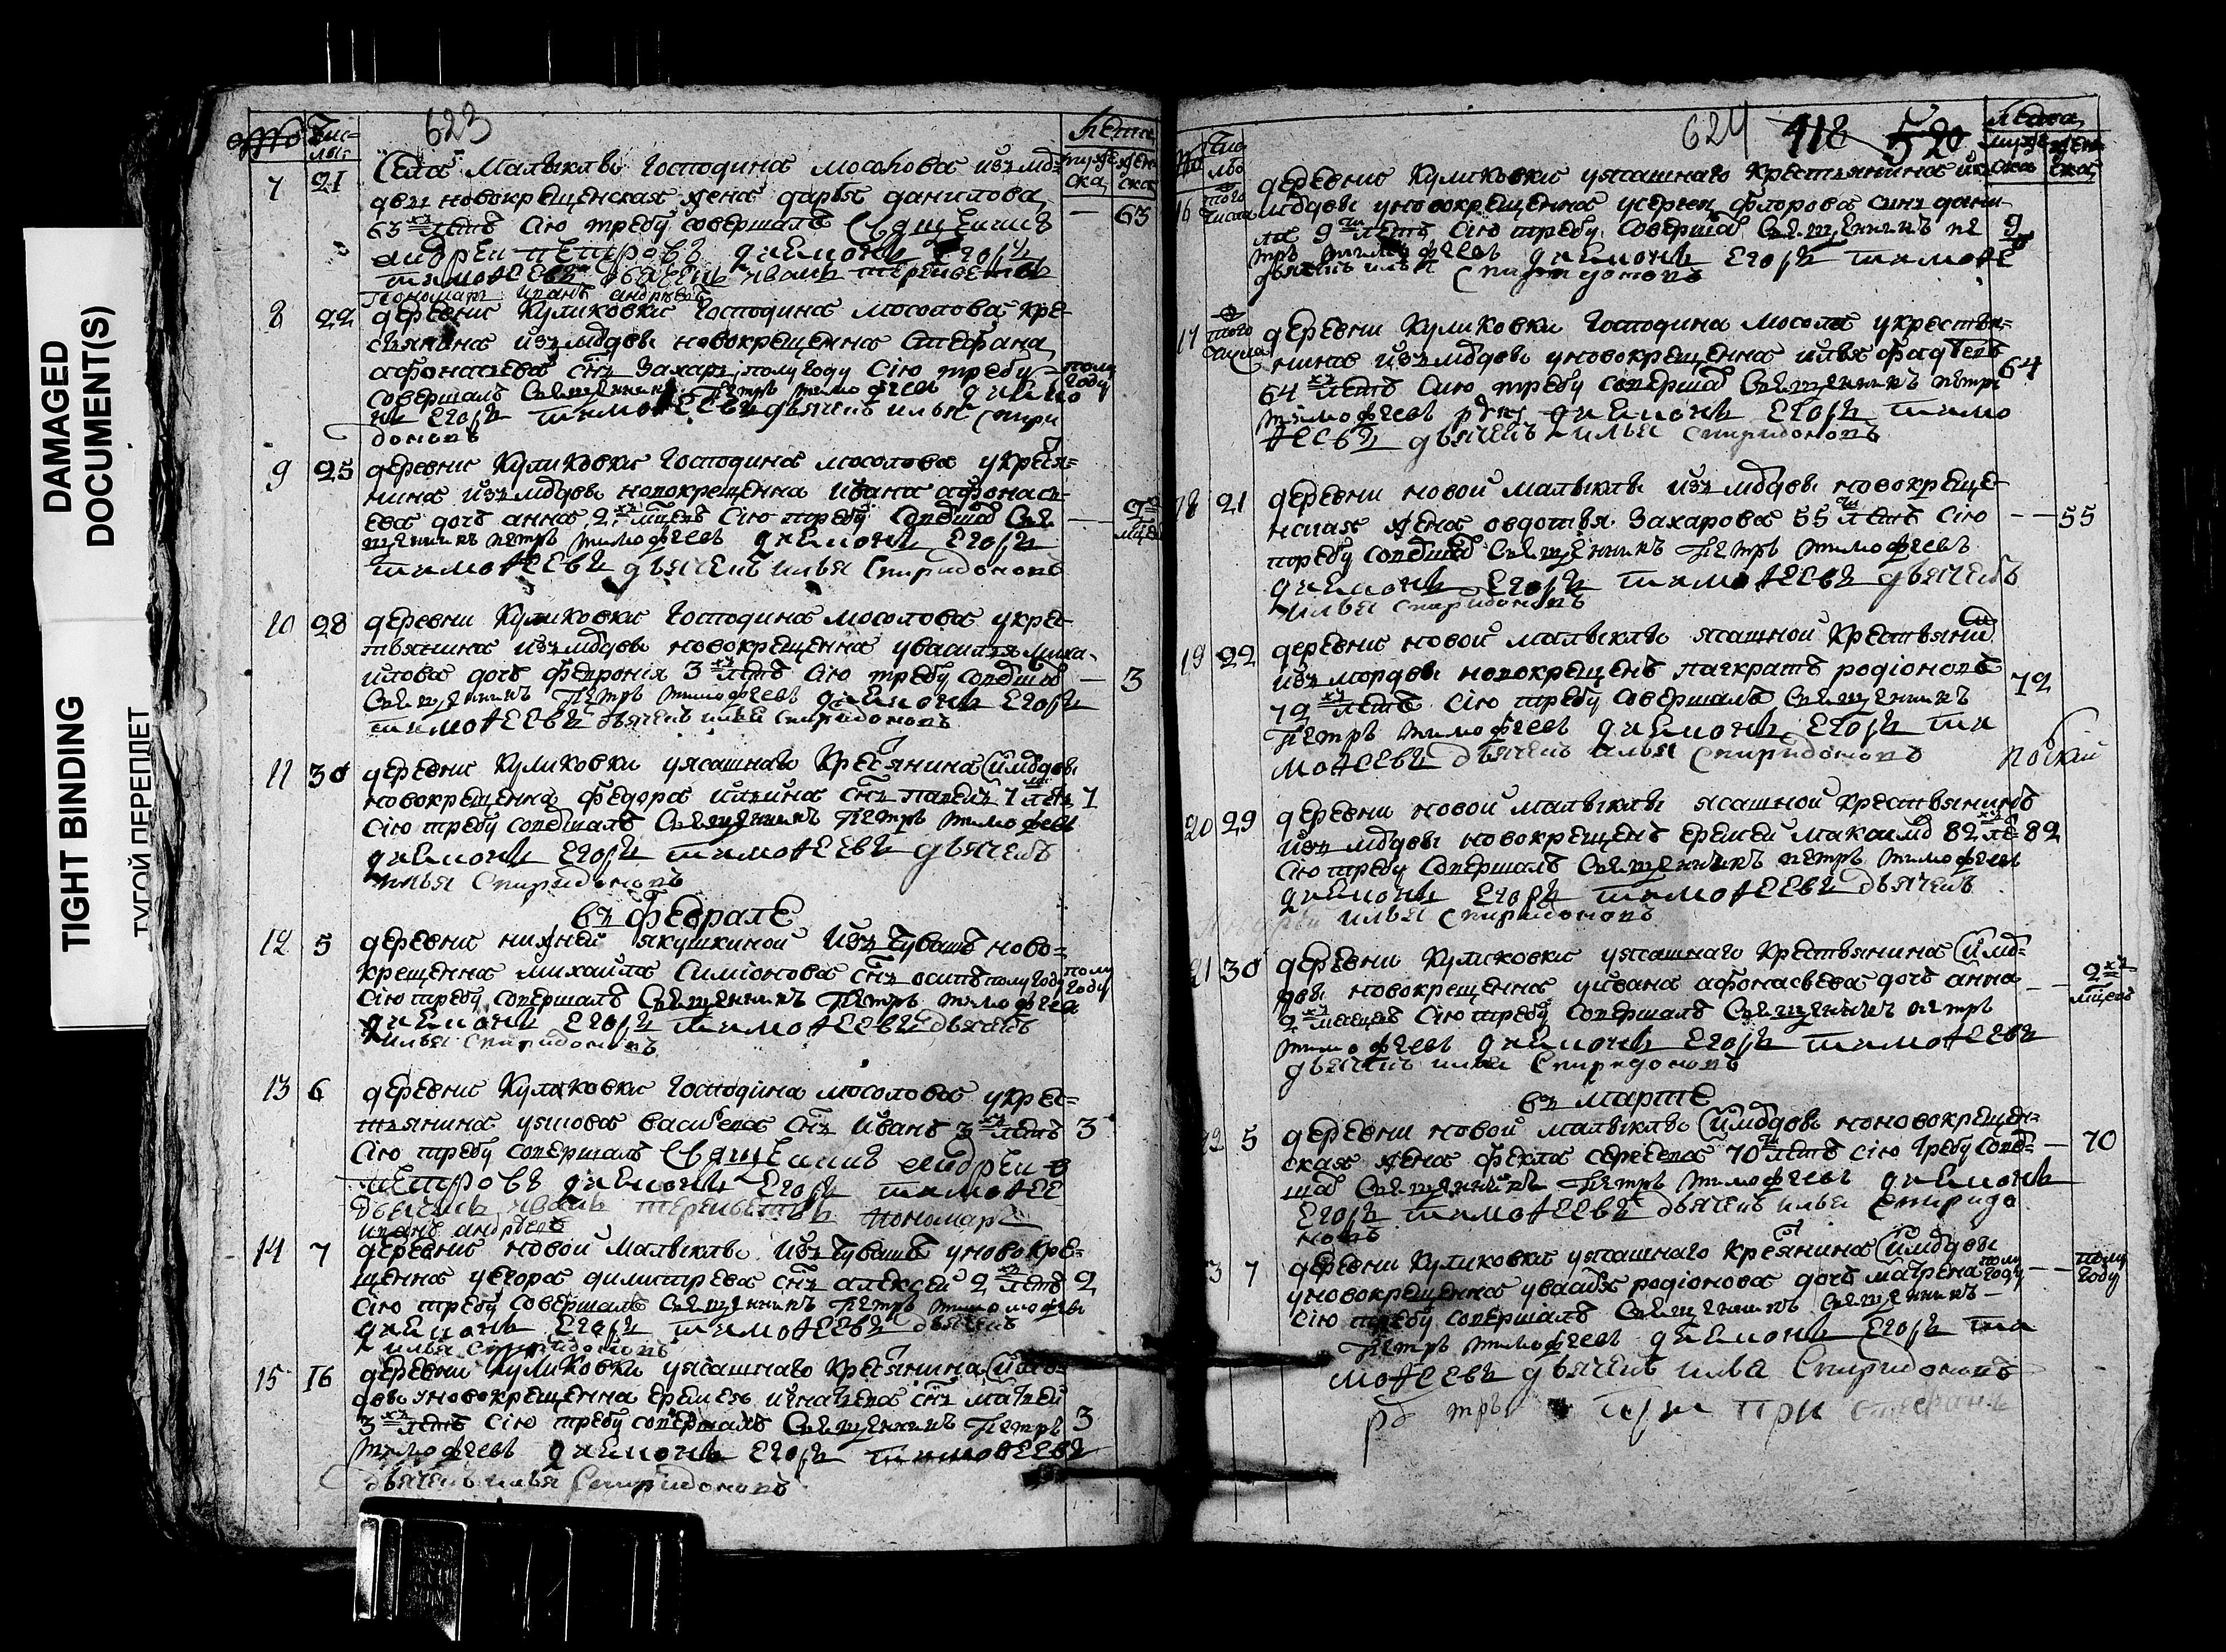 DAMAGED
DOCUMENT(S)
TIGHT BINDING
ТУГОЙ ПЕРЕПЛЕТ
623
Чис-
лы
Лета
муже
ска
женска
7 21 Села Малыклы Господина мосолова изъ мор-
двы новокрещенская жена дарья данилова
63 хъ летъ сию требу совершалъ Священникъ — 63
андреи петровъ диаконъ Егоръ
тимофеевъ дьячекъ иванъ терентьевъ
пономарь иванъ андреевъ
8 22 деревни Куликовки Господина мосолова кре-
стьянина изъ мордвы новокрещенна Стефана
афонасьева снъ Захаръ полугоду сию требу полу
году
совершалъ Священникъ Петръ тимофеевъ диако
нъ Егоръ тимофеевъ дьячекъ илья спири
доновъ
9 25 деревни Куликовки Господина мосолова у крестья-
нина изъ мордвы новокрещенна ивана афонась-
ева дочь анна 2 хъ мцевъ сию требу совершал Свя — 2 хъ
мцев
щенникъ петръ тимофеевъ диаконъ Егоръ
тимофеевъ дьячекъ илья Спиридоновъ
10 28 деревни Куликовки Господина мосолова у крес-
тьянина изъ мордвы новокрещенна у василья миха-
илова дочь феврония 3 хъ летъ сию требу совершал — 3
Священникъ Петръ тимофеевъ диаконъ Егоръ
тимофеевъ дьячекъ илья спиридоновъ
11 30 деревни Куликовки у ясашнаго Кресянина измордвы
новокрещенна федора ильина снъ павелъ 1 летъ 1
сию требу совершалъ Священникъ Петръ тимофеевъ
диаконъ Егоръ тимофеевъ дьячекъ
илья Спиридоновъ
въ феврале
12 5 деревни нижней якушкиной изъ чувашъ ново-
крещенна михаила Симионова снъ осипъ полугоду полу
году
сию требу совершалъ Священникъ Петръ тимофеев
диаконъ Егоръ тимофеевъ дьячекъ
илья спиридоновъ
13 6 деревни Куликовки Господина мосолова у крес-
тьянина васильева снъ Иванъ 3 хъ летъ 3
сию требу совершалъ Священникъ андреи
петровъ диаконъ Егоръ тимофее
дьячекъ иванъ терентьевъ пономарь
иванъ андреевъ
14 7 деревни новой малыклы изъ чувашъ у новокре-
щенна у егора димитрева снъ алексеи 2 хъ летъ 2
сию требу совершалъ Священникъ Петръ тимофеевъ
диаконъ Егоръ тимофеевъ дьячекъ
илья Спиридоновъ
15 16 деревни Куликовки у ясашнаго Кресянина измор-
двы у новокрещенна еремея игнатьева снъ матвеи
3 хъ летъ сию требу совершалъ Священникъ Петръ 3
тимофеевъ диаконъ Егоръ тимофеевъ
дьячекъ илья Спиридоновъ
624 418 520
Чис
лы
Лета
муже
ска
женска
16 того
числа деревни Куликовки у ясашнаго Крестьянина из
мордвы у новокрещенна у сергея флорова сынъ дани-
ла 9 ти летъ сию требу совершал Священникъ пе 9
тръ тимофеевъ диаконъ Егоръ тимофе
дьячекъ илья Спиридоновъ
17 того
числа деревни Куликовки Господина Мосола у крестья-
нина изъ мордвы у новокрещенна илья фадеевъ
64 хъ летъ сию требу совершал Священникъ петръ 64
тимофеевъ диаконъ Егоръ тимо
феевъ дьячекъ илья спиридоновъ
18 21 деревни новой малыклы изъ мордвы новокреще-
нская жена овдотья Захарова 55 ти летъ сию — — 55
требу совершал Священникъ Петръ тимофеевъ
диаконъ Егоръ тимофеевъ дьячекъ
илья спиридоновъ
19 22 деревни новой малыклы ясашной Крестьянин
изъ мордвы новокрещенъ панкратъ родионовъ
72 хъ летъ сию требу совершалъ Священникъ 72
Петръ тимофеевъ диаконъ Егоръ ти
мофеевъ дьячекъ илья Спиридоновъ
20 29 деревни новой малыклы ясашной крестьянинъ
изъ мордвы новокрещенъ еремеи максимо 82 хъ ле 82
сию требу совершалъ Священникъ петръ тимофеевъ
диаконъ Егоръ тимофеевъ дьячекъ
илья спиридоновъ
21 30 деревни Куликовки у ясашнаго Крестьянина измор-
двы новокрещенна у ивана афонасьева дочь анна — — 2 хъ
мцевъ
2 хъ месецевъ сию требу совершалъ Священникъ петръ
тимофеевъ диаконъ Егоръ тимофеевъ
дьячекъ илья Спиридоновъ
въ марте
22 5 деревни новой малыклы измордвы новокрещен-
ская жена фекла сергеева 70 ти летъ сию требу совер- — 70
шал Священникъ Петръ тимофеевъ диаконъ
Егоръ тимофеевъ дьячекъ илья спиридо
новъ
3 7 деревни Куликовки у ясашнаго Кресянина измордвы
у новокрещенна у василья родионова дочь матрена полугоду — — полу
году
сию требу совершалъ Священникъ Священникъ
Петръ тимофеевъ диаконъ Егоръ ти
мофеевъ дьячекъ илья Спиридоновъ